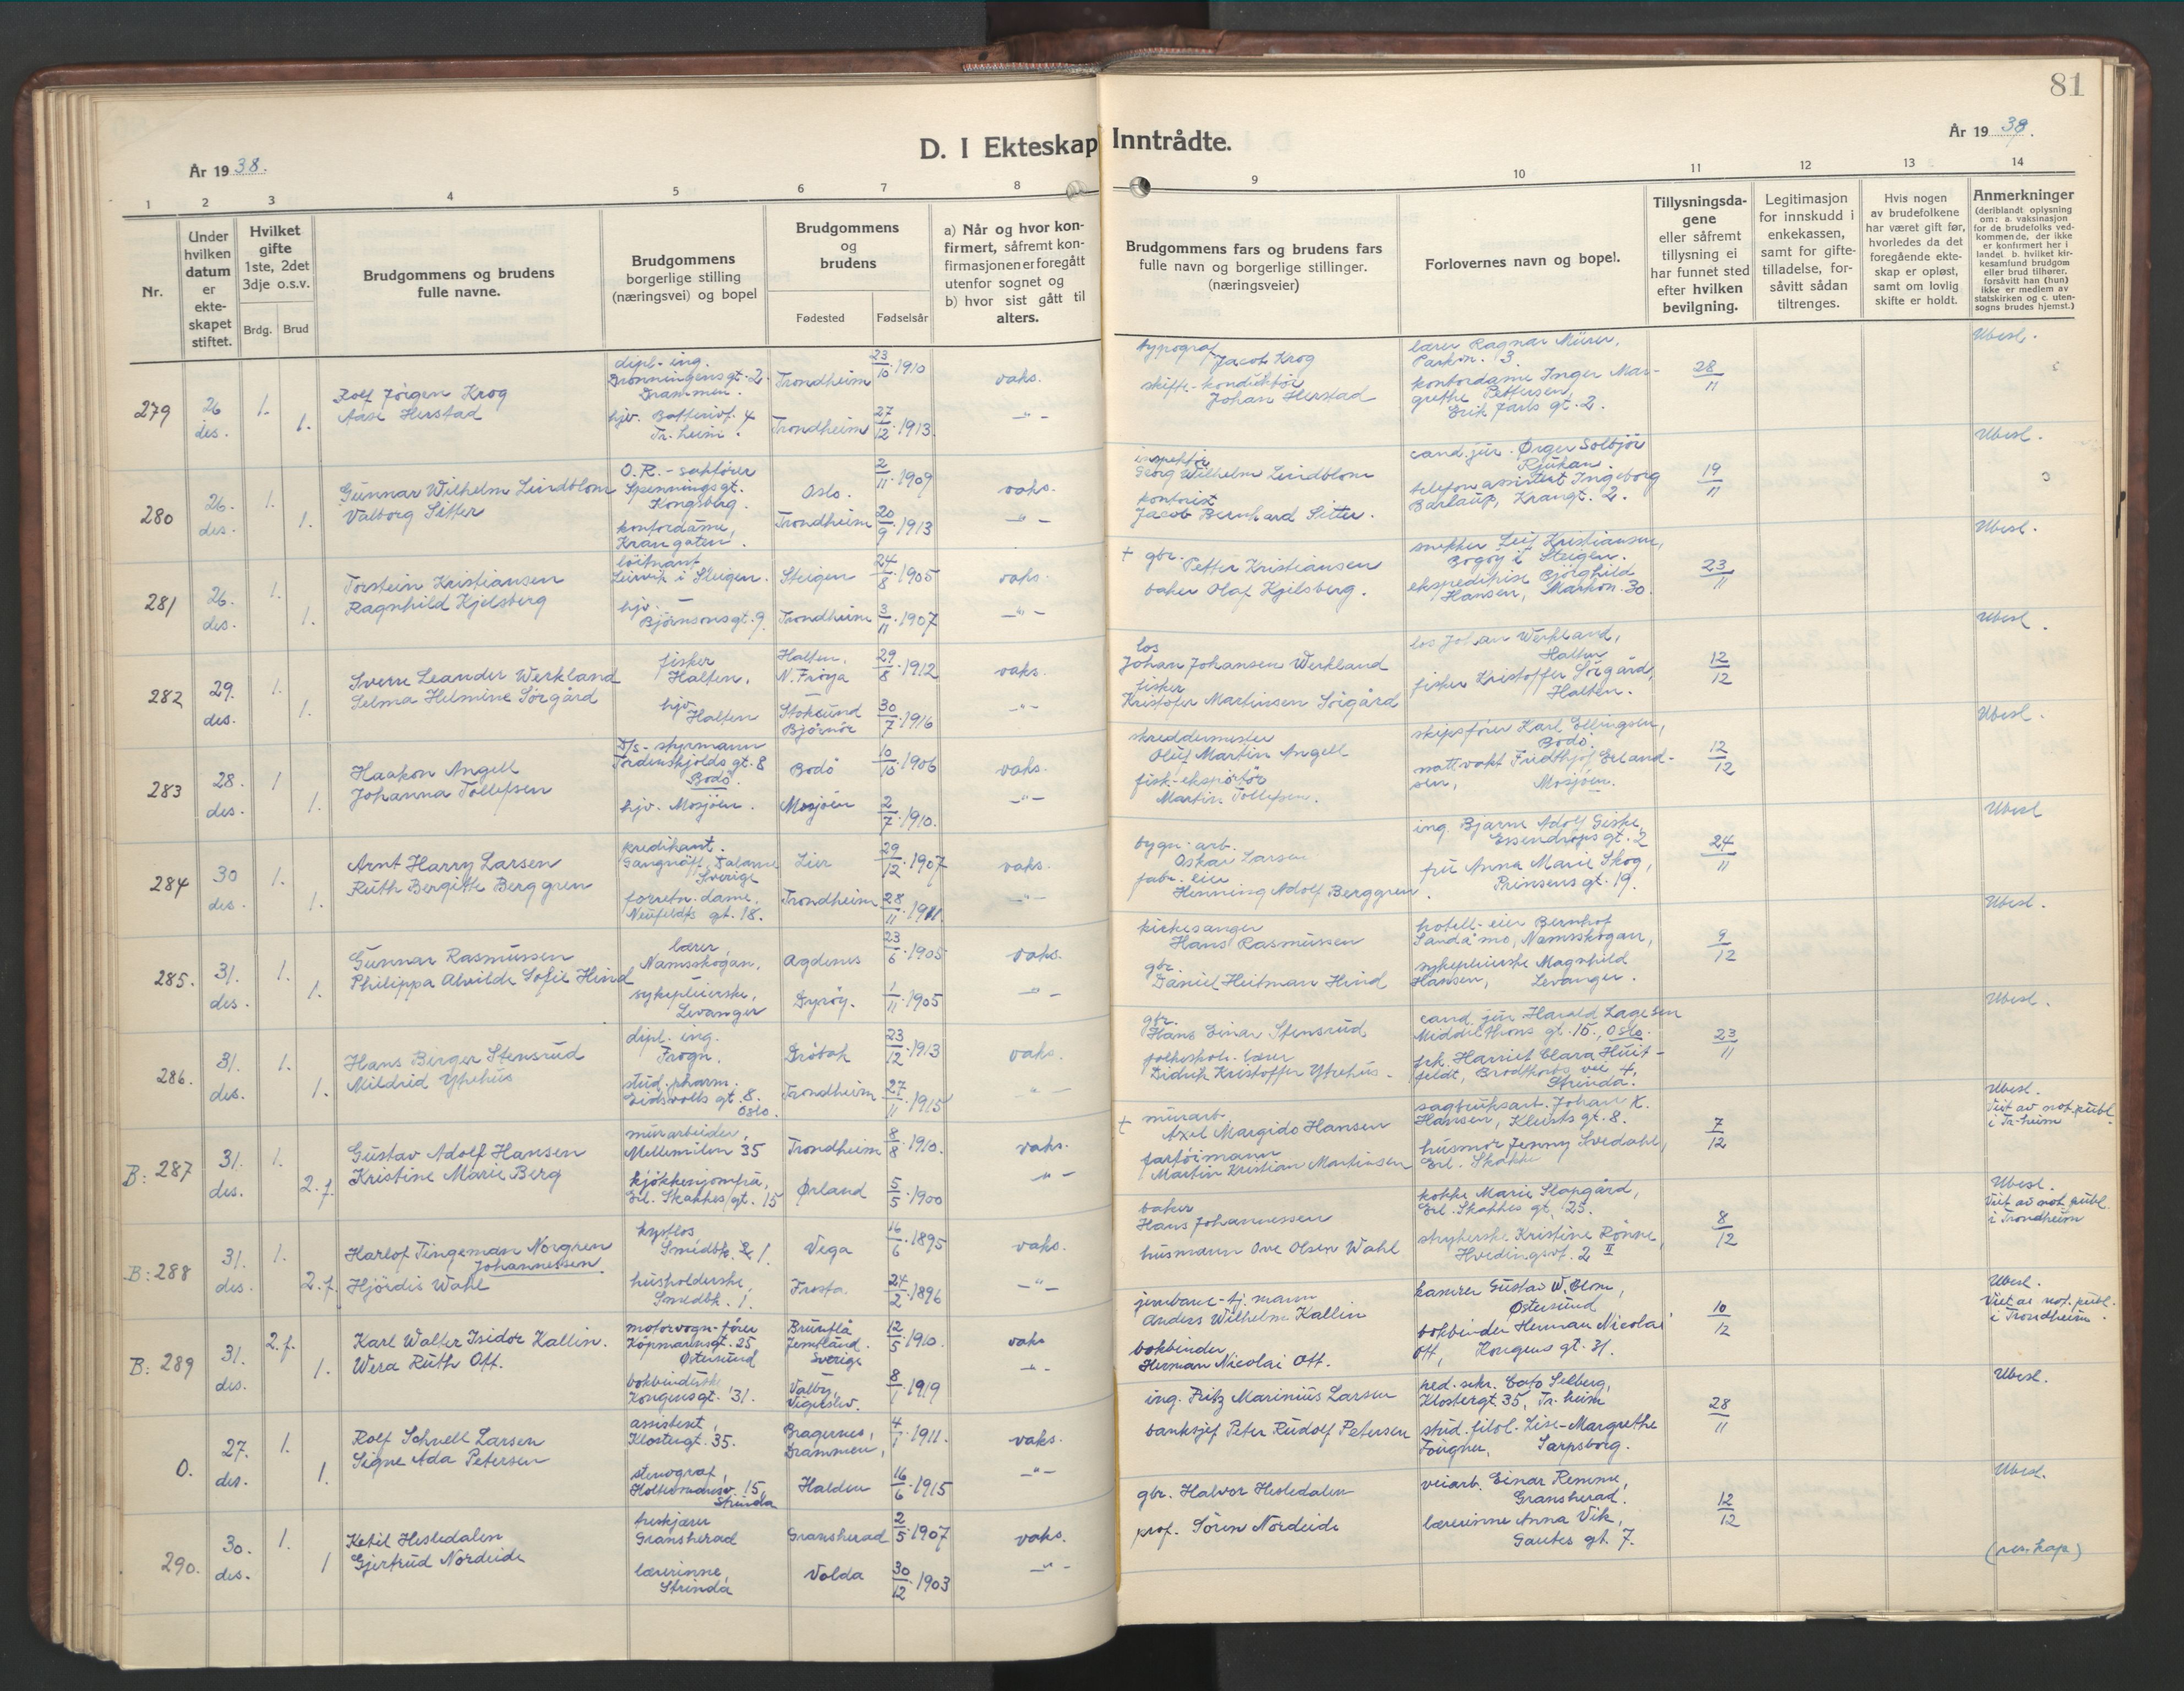 81
D. I Ekteskap Inntrådte.
År 1938.
År 1938.
1 2 3 4 5 6 7 8 9 10 11 12 13 14
Nr.
Under hvilken datum er ekte-skapet stiftet.
Hvilket gifte 1ste, 2det 3dje o.s.v.
Brdg. Brud
Brudgommens og brudens fulle navne.
Brudgommens borgerlige stilling (næringsvei) og bopel
Brudgommens og brudens
Fødested Fødselsår
a) Når og hvor kon-firmert, såfremt kon-firmasjonen er foregått utenfor sognet og b) hvor sist gått til alters.
Brudgommens fars og brudens fars fulle navn og borgerlige stillinger. (næringsveier)
Forlovernes navn og bopel.
Tillysningsda-gene eller såfremt tillysning ei har funnet sted efter hvilken bevilgning.
Legitimasjon for innskudd i enkekassen, samt for gifte-tilladelse, for-såvitt sådan tiltrenges.
Hvis nogen av brudefolkene har været gift før, hvorledes da det foregående ekte-skap er opløst, samt om lovlig skifte er holdt.
Anmerkninger (deriblandt oplysning om: a. vaksinasjon for de brudefolks ved-kommende, der ikke er konfirmert her i landet b. hvilket kir-kesamfund brudgom eller brud tilhører, forsåvitt han (hun) ikke er medlem av statskirken og c. uten-sogns brudes hjemst.)
279 26 des. 1. 1.
Rolf Jörgen Krog
Aase Herstad
dipl-ing. Dronningensgt. 2. Drammen.
hjv. Batterivt. 4 Tr.heim.
Trondheim 23/10 1910 vaks.
Trondheim 27/12 1913 -"-
typograf Jacob Krog
skifte-konduktör Johan Herstad
lærer Ragnar Mürer, Parkvn. 3
kontordame Inger Mar-grethe Pettersen, Erik Jarls gt. 2.
28/11
Ubesl.
280 26. des. 1. 1.
Gunnar Wilhelm Lindblom
Valborg Sitter
O.R.-sakfører Spenningsgt. Kongsberg.
kontordame, Krangaten.
Oslo. 2/11 1909 vaks.
Trondheim 20/9 1913 -"-
inspektör Georg Wilhelm Lindblom
kontorist Jacob Bernhard Sitter.
cand. jur. Ørger Solbjör Rjukan.
telefonassistent Ingeborg Barlaup, Krangt. 2.
19/11
Ubesl.
281 26. des. 1. 1.
Torstein Kristiansen
Ragnhild Kjelsberg
löitnant Leirvik i Steigen.
hjv. Björnsonsgt. 9.
Steigen 24/8 1905 vaks.
Trondheim 3/11 1907 -"-
+ gbr. Petter Kristiansen
baker Olaf Kjelsberg.
snekker Leif Kristiansen, Bogöy i Steigen.
ekspeditrise Björghild Hansen, Markvn. 30.
23/11
Ubesl.
282 29. des. 1. 1.
Sverre Leander Werkland
Selma Helmine Sörgård
fisker Halten.
hjv. Halten
Halten, N. Fröya 29/8 1912 vaks.
Stoksund Björnör 30/7 1916 -"-
los Johan Johansen Werkland
fisker Kristofer Martinsen Sörgård
los Johan Werkland, Halten
fisker Kristoffer Sörgård, Halten.
12/12
Ubesl.
283 28. des. 1 1.
Haakon Angell
Johanna Tollefsen
D/s-styrmann Tordenskjolds gt. 8 Bodö.
hjv. Mosjöen.
Bodö 10/10 1906 vaks.
Mosjöen 2/7 1910. -"-
skreddermester Oluf Martin Angell
fisk-eksportör Martin Tollefsen.
skipsförer Karl Ellingsen, Bodö.
nattvakt Fridthjof Erland-sen, Mosjöen.
12/12
Ubesl.
284 30 des. 1. 1.
Arnt Harry Larsen
Ruth Bergitte Berggren
predikant. Dalarne Sverige
forretn. dame, Neufeldts gt. 18.
Lier 29/12 1907 vaks.
Trondheim 28/11 1911. -"-
bygn. arb. Oskar Larsen
fabr. eier Henning Adolf Berggren.
ing. Bjarne Adolf Geske, Essendropsgt. 2
fru Anna Marie Skog, Prinsens gt. 19.
24/11
Ubesl
285. 31. des. 1. 1.
Gunnar Rasmussen
Philippa Alvilde Sofie Hind
lærer, Namsskogan.
sykepleierske, Levanger
Agdenes 23/6 1905 vaks.
Dyröy. 1/11 1905 -"-
kirkesanger Hans Rasmussen
gbr. Daniel Heitman Hind
hotell-eier Bernhof Sandåmo, Namsskogan,
sykepleierske Magnhild Hansen, Levanger.
9/12
Ubesl.
286. 31. des. 1. 1.
Hans Berger Stensrud
Mildrid Ytrehus
dipl. ing. Frogn.
stud. pharm. Eidsvolls gt. 8. Oslo.
Dröbak 23/12 1913 vaks.
Trondheim 27/11 1915 " -
gbr. Hans Einar Stensrud
folkeskole-lærer Didrik Kristoffer Ytrehus.
cand. jur Harald Lagesen Middelthons gt. 15, Oslo.
frk. Harriet Clara Huit-feldt, Brodtkorbs vei 4, Strinda.
23/11
Ubesl.
B: 287 31. des. 1. 2.f.
Gustav Adolf Hansen
Kristine Marie Berg
murarbeider, Mellemilen 35
kjökkenjomfru, Erl. Skakkes gt. 15
Trondheim 8/8 1910. vaks.
Ørland 5/5 1900 " -
+ murarb. Axel Margido Hansen
fartöimann Martin Kristian Martinsen
sagbruksarb. Johan K. Hansen, Klunts gt. 8.
husmor Jenny Svedahl, Erl. Skakke
7/12
Ubesl. Viet av not. publ. i Tr-heim
B: 288 31. des. 1. 2.f.
Harlof Tingeman Norgren Johannessen
Hjördis Wahl
kystlos Smedbk. 1.
husholderske, Smedbk. 1.
Vega 16/6 1895 vaks.
Frosta. 24/2 1896 -"-
baker Hans Johannessen
husmann Ove Olsen Wahl
kokke Marie Slapgård, Erl. Skakkes gt. 23.
strykerske Kristine Rönne, Hvedingsvt. 2 II
8/12
Ubesl. Viet av not. publ. i Trondheim
B: 289 31. des. 2.f. 1.
Karl Walter Isidor Kallin.
Wera Ruth Ott.
motorvogn-förer Köpmannsgt. 25 Östersund
bokbinderske Kongensgt. 31.
Brunflå Jemtland. Sverige 12/5 1910. vaks
Valby, Vigerslev. 8/1 1919 -"-
jernbane-tj. mann Anders Wilhelm Kallin
bokbinder Herman Nicolai Ott.
kamrer Gustav W. Blom, Östersund
bokbinder Herman Nicolai Ott, Kongens gt. 31.
10/12
Ubesl. Viet av not. publ. i Trondheim.
0. 27. des. 1. 1.
Rolf Schnell Larsen
Signe Ada Petersen
assistent, Klostergt. 35.
stenograf, 15, Strinda
Bragernes, Drammen, 4/1 1911. vaks.
Halden 16/6 1915 -"-
ing. Fritz Marinius Larsen
banksjef Peter Rudolf Petersen
red. sekr. Selberg, Klostergt. 35, Tr. heim
stud. filol. Lise-Margrethe Fougner, Sarpsborg.
28/11
Ubesl.
290. 30. des. 1. 1
Ketil Hesledalen
Gjertrud Nordeide
herskjærer Gransherad
lærerinne, Strinda
Gransherad 2/5 1907 vaks.
Volda 30/12 1903 -"-
gbr. Halvor Hesledalen
prof. Sören Nordeide
veiarb. Einar Remme, Gransherad.
lærerinne Anna Vik, Gautes gt. 7.
12/12
Ubesl.